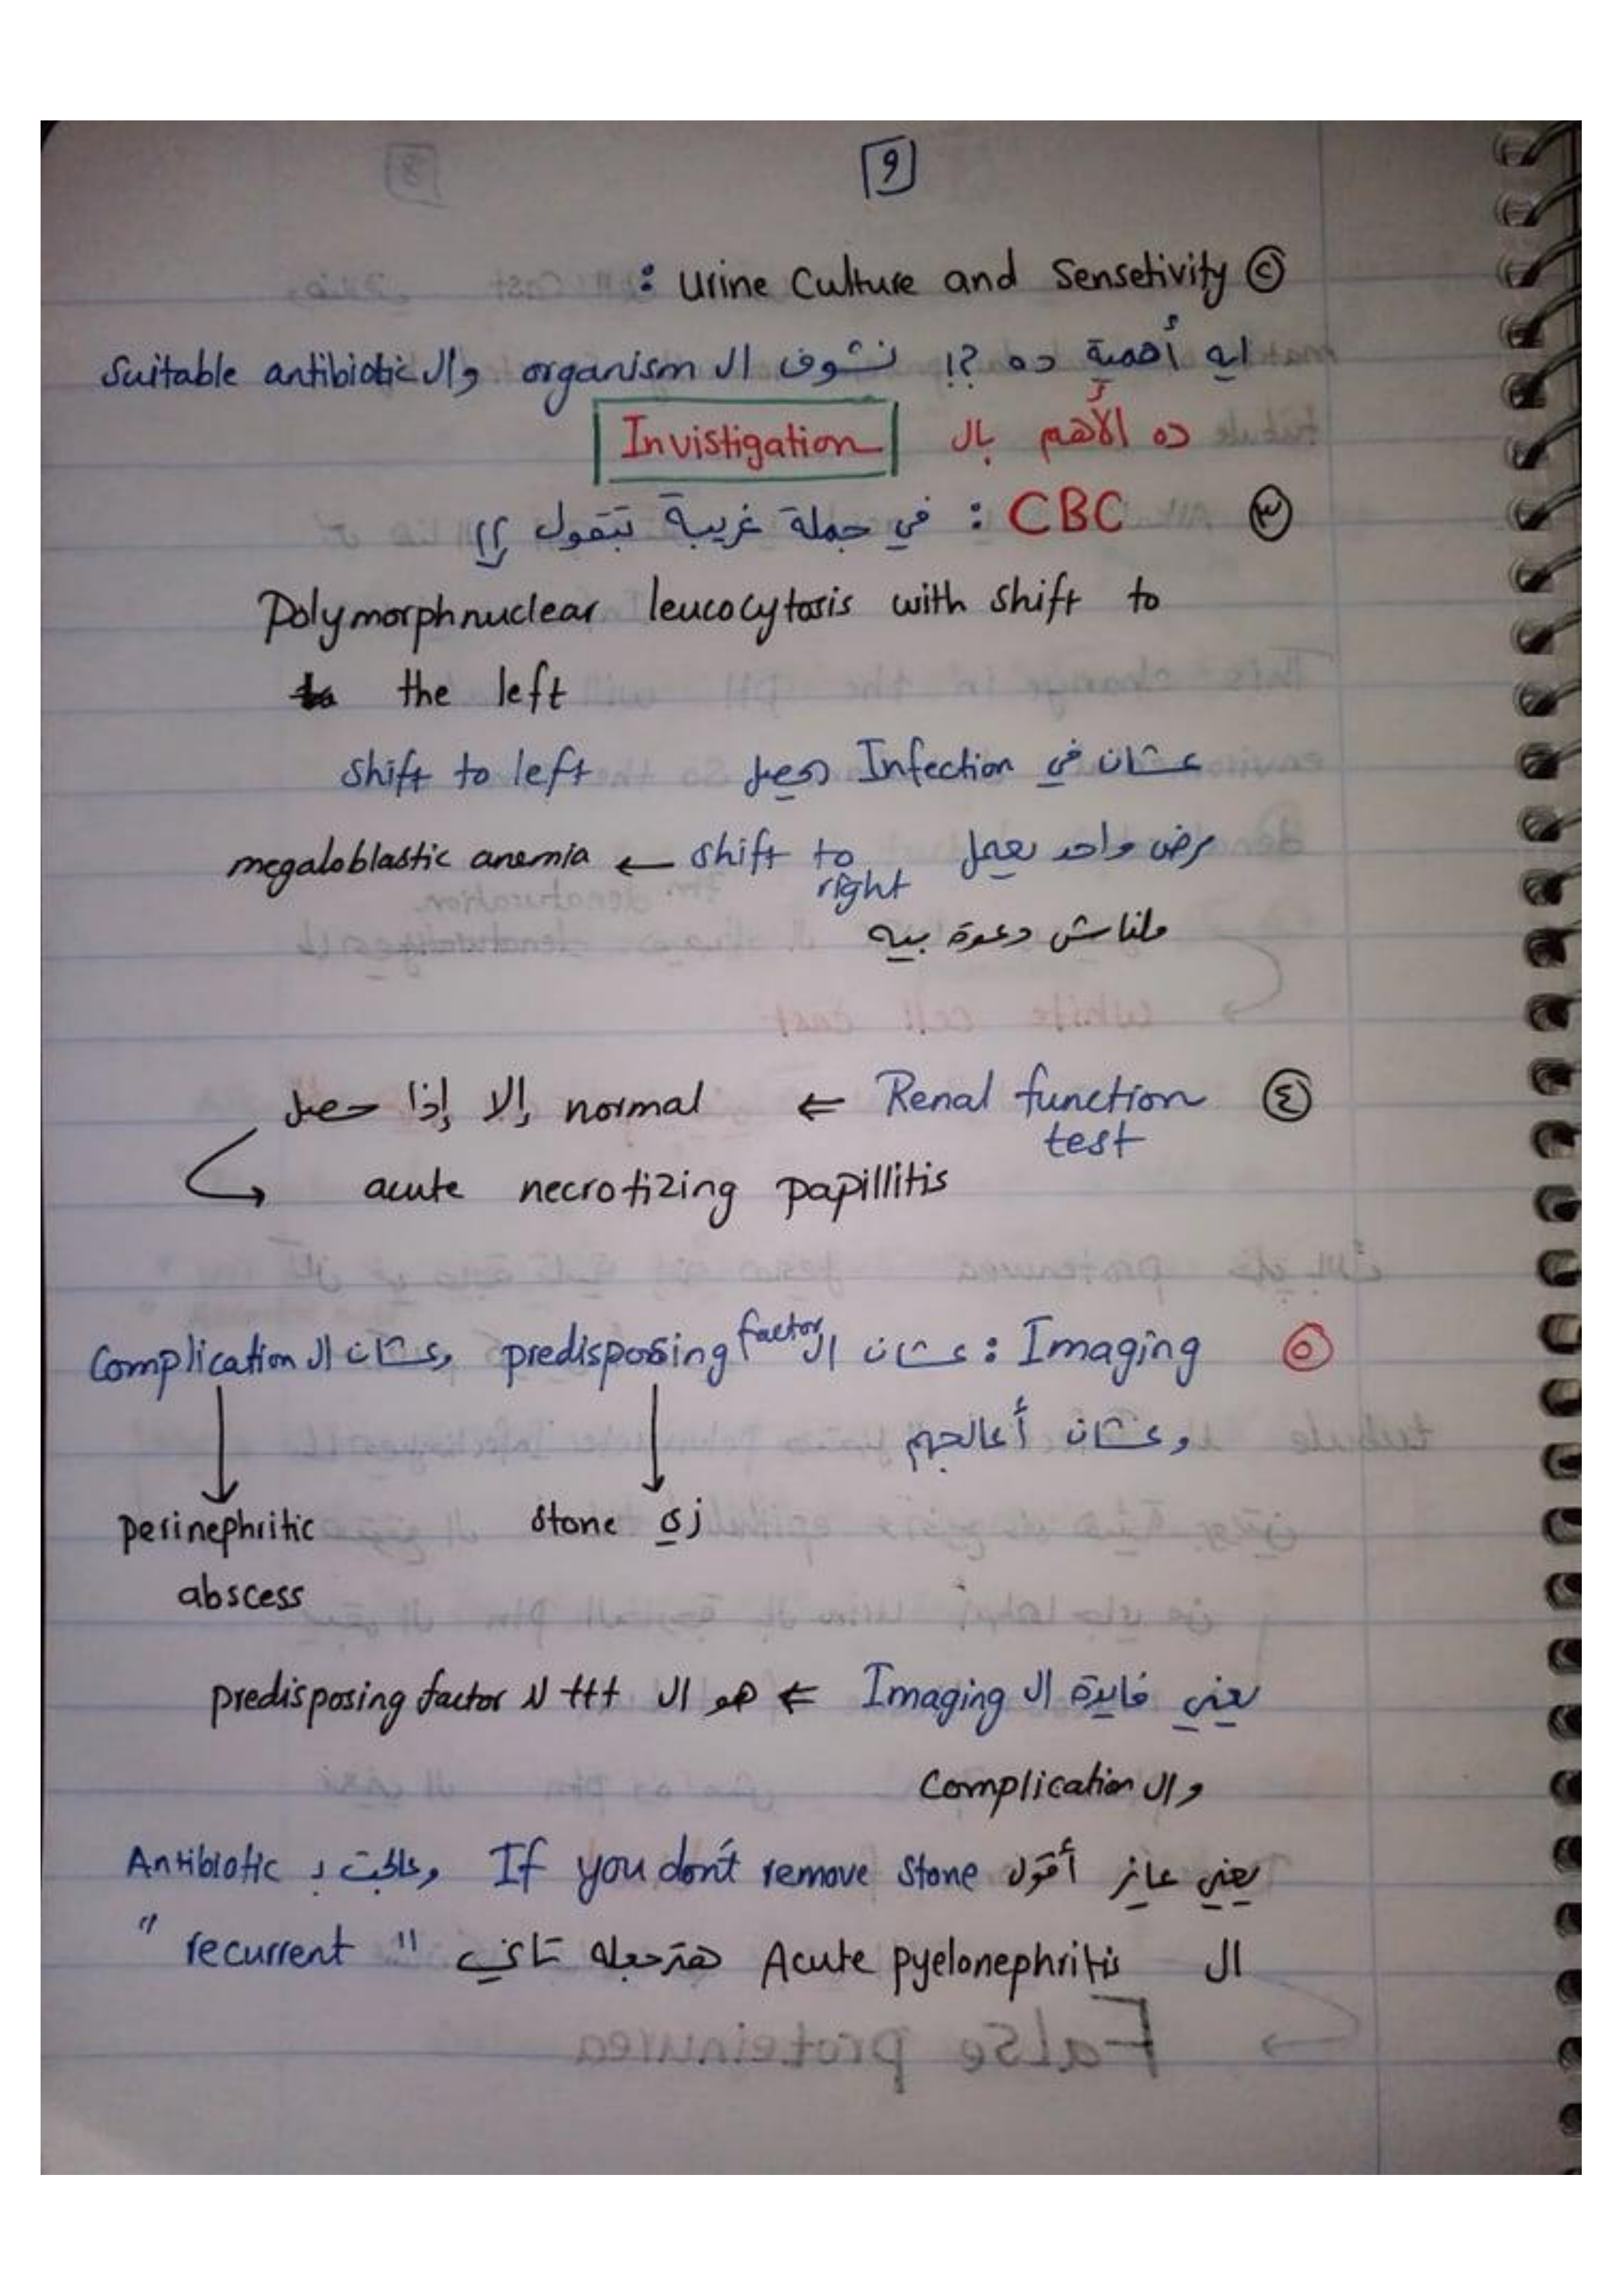 9
② Urine Culture and Sensetivity :
ايه أهمية ده ؟! نشوف ال organism وال Suitable antibiotic
ده الأهم بال Invistigation
③ CBC : في جملة غريبة بتقول ؟؟
Polymorphnuclear leucocytosis with shift to
the left
عشان في Infection حصل shift to left
مرض واحد يعمل shift to right ← megaloblastic anemia
ملناش دعوة بيه
٤ Renal function test ⇐ normal إلا إذا حصل
acute necrotizing papillitis
٥ Imaging : عشان ال predisposing factor وعشان ال Complication
وعشان أعالجهم
زي stone
perinephritic
abscess
يعني فايدة ال Imaging ⇐ هو ال ttt لل predisposing factor
وال Complication
يعني عايز أقول If you don't remove stone وعالجت بـ Antibiotic
ال Acute pyelonephritis هترجعله تاني " recurrent "